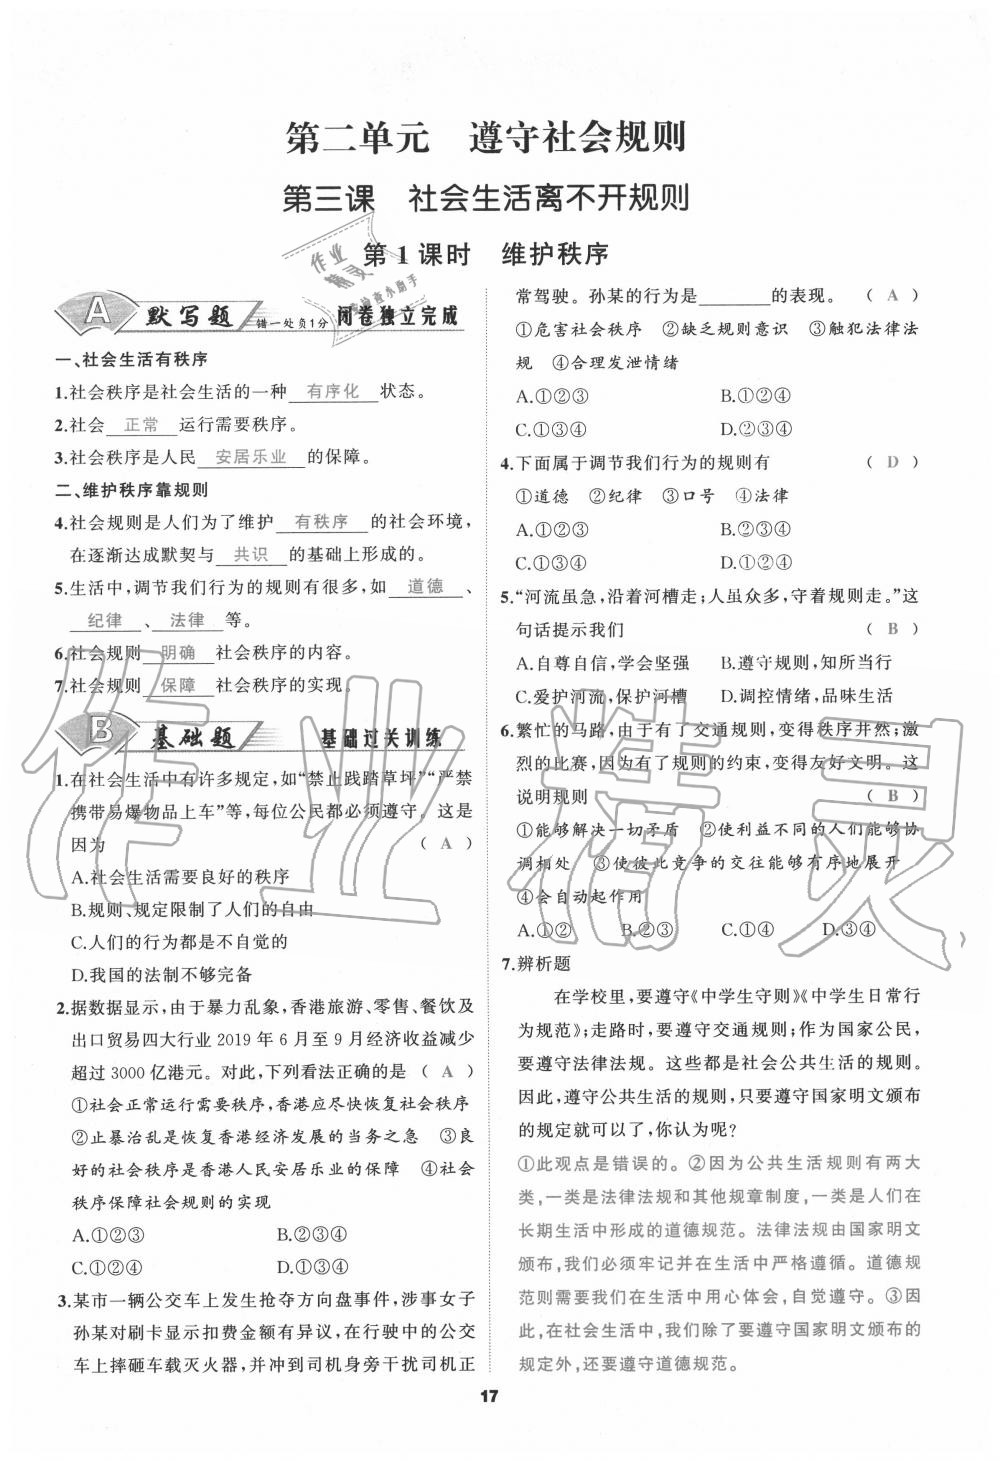 第二单元　遵守社会规则
第三课　社会生活离不开规则
第1课时　维护秩序
A 默写题 错一处负1分 闭卷独立完成
一、社会生活有秩序
1.社会秩序是社会生活的一种 有序化 状态。
2.社会 正常 运行需要秩序。
3.社会秩序是人民 安居乐业 的保障。
二、维护秩序靠规则
4.社会规则是人们为了维护 有秩序 的社会环境,
在逐渐达成默契与 共识 的基础上形成的。
5.生活中,调节我们行为的规则有很多,如 道德 、
纪律 、 法律 等。
6.社会规则 明确 社会秩序的内容。
7.社会规则 保障 社会秩序的实现。
B 基础题 基础过关训练
1.在社会生活中有许多规定,如“禁止践踏草坪”“严禁
携带易爆物品上车”等,每位公民都必须遵守。这是
因为 （ A ）
A.社会生活需要良好的秩序
B.规则、规定限制了人们的自由
C.人们的行为都是不自觉的
D.我国的法制不够完备
2.据数据显示,由于暴力乱象,香港旅游、零售、餐饮及
出口贸易四大行业 2019 年 6 月至 9 月经济收益减少
超过 3000 亿港元。对此,下列看法正确的是 （ A ）
①社会正常运行需要秩序,香港应尽快恢复社会秩序
②止暴治乱是恢复香港经济发展的当务之急　③良
好的社会秩序是香港人民安居乐业的保障　④社会
秩序保障社会规则的实现
A.①②③　B.②③④
C.①②④　D.①③④
3.某市一辆公交车上发生抢夺方向盘事件,涉事女子
孙某对刷卡显示扣费金额有异议,在行驶中的公交
车上摔砸车载灭火器,并冲到司机身旁干扰司机正
常驾驶。孙某的行为是________的表现。（ A ）
①危害社会秩序　②缺乏规则意识　③触犯法律法
规　④合理发泄情绪
A.①②③　B.①②④
C.①③④　D.②③④
4.下面属于调节我们行为的规则有 （ D ）
①道德　②纪律　③口号　④法律
A.①②③　B.②③④
C.①③④　D.①②④
5.“河流虽急,沿着河槽走;人虽众多,守着规则走。”这
句话提示我们 （ B ）
A.自尊自信,学会坚强　B.遵守规则,知所当行
C.爱护河流,保护河槽　D.调控情绪,品味生活
6.繁忙的马路,由于有了交通规则,变得秩序井然;激
烈的比赛,因为有了规则的约束,变得友好文明。这
说明规则 （ B ）
①能够解决一切矛盾　②使利益不同的人们能够协
调相处　③使彼此竞争的交往能够有序地展开
④会自动起作用
A.①②　B.②③　C.①④　D.③④
7.辨析题
在学校里,要遵守《中学生守则》《中学生日常行
为规范》;走路时,要遵守交通规则;作为国家公民,
要遵守法律法规。这些都是社会公共生活的规则。
因此,遵守公共生活的规则,只要遵守国家明文颁布
的规定就可以了,你认为呢?
①此观点是错误的。②因为公共生活规则有两大
类,一类是法律法规和其他规章制度,一类是人们在
长期生活中形成的道德规范。法律法规由国家明文
颁布,我们必须牢记并在生活中严格遵循。道德规
范则需要我们在生活中用心体会,自觉遵守。③因
此,在社会生活中,我们除了要遵守国家明文颁布的
规定外,还要遵守道德规范。
17
作业精灵
作业
精灵